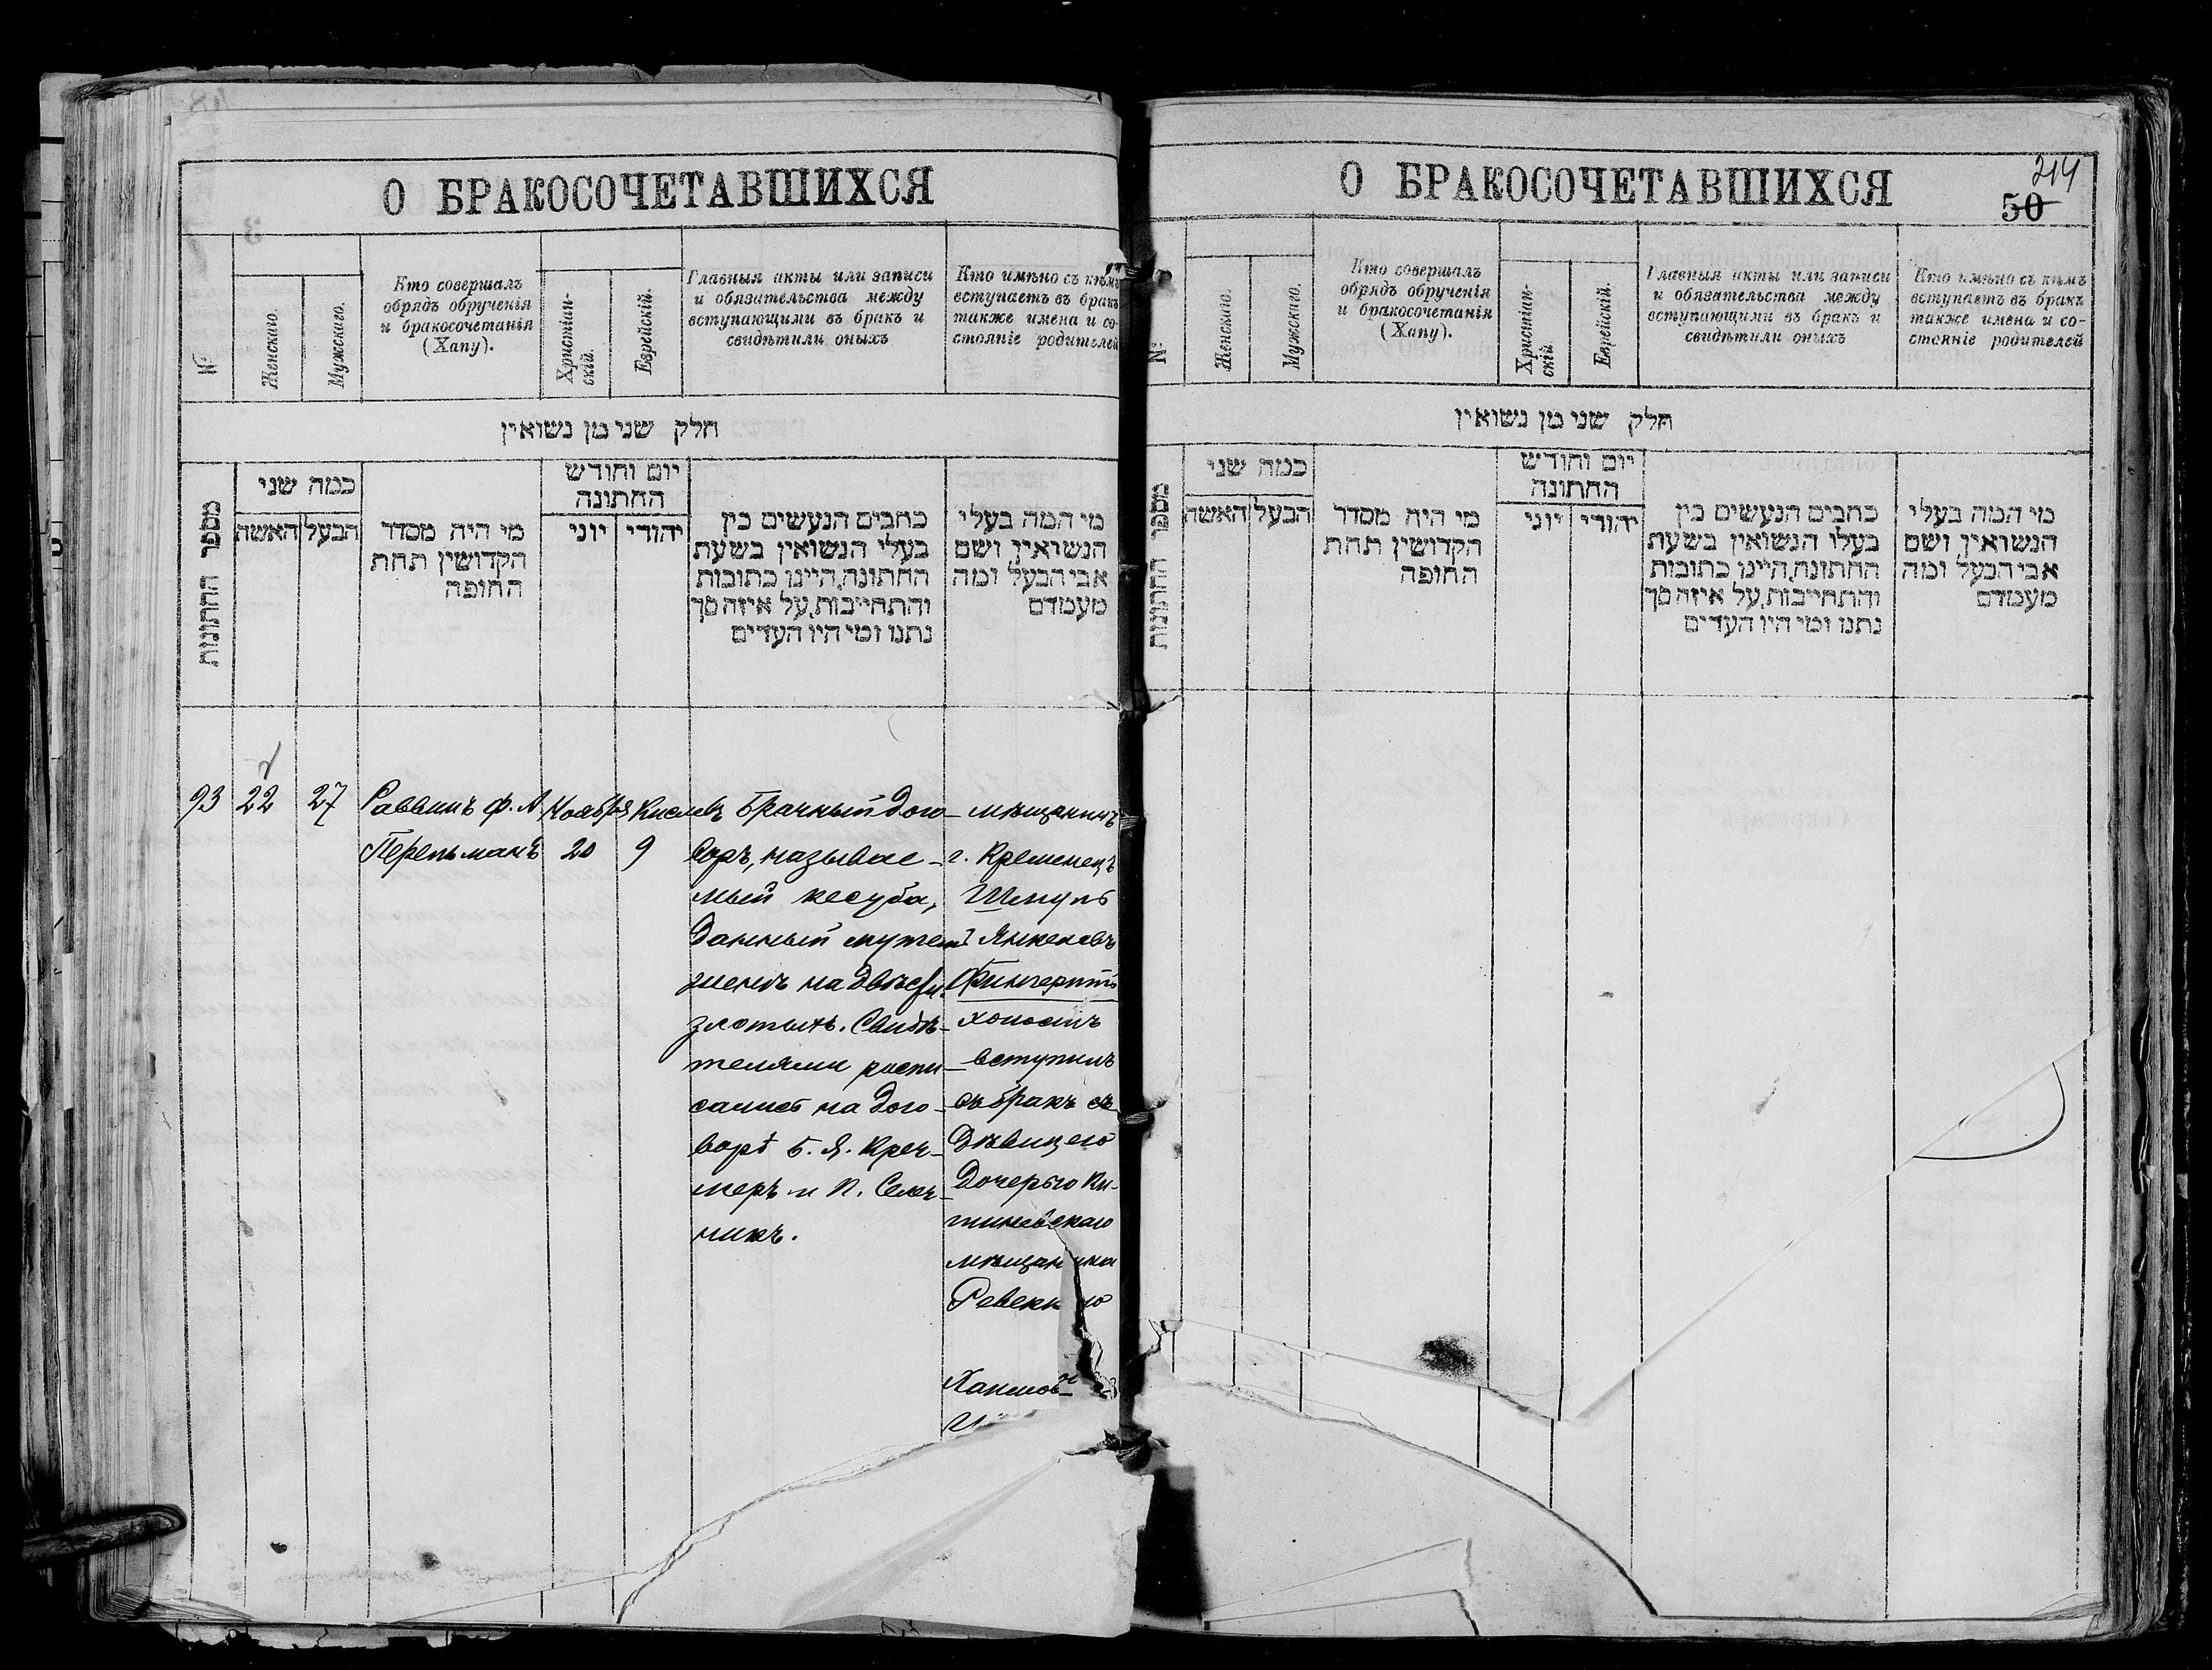 О БРАКОСОЧЕТАВШИХСЯ
№
Женскаго.
Мужскаго.
Кто совершалъ
обрядъ обрученія
и бракосочетанія
(Хапу).
Христіан-
скій.
Еврейскій.
Главныя акты или записи
и обязательства между
вступающими въ бракъ и
свидѣтили оныхъ
Кто имѣно съ кѣмъ
вступаетъ въ бракъ
также имена и со-
стояніе родителей
חלק שני מן נשואין
מספר החתונות
כמה שני
האשה
הבעל
מי היה מסדר
הקדושין תחת
החופה
יום וחודש
החתונה
יוני
יהודי
כתבים הנעשים בין
בעלי הנשואין בשעת
החתונה, היינו כתובות
והתחייבות, על איזה סך
נתנו ומי היו העדים
מי המה בעלי
הנשואין ושם
אבי הבעל ומה
מעמדם
93
22
27
Раввинъ Ф. А
Перельманъ
Ноября
20
Кислевъ
9
Брачный дого-
воръ, называе-
мый кесуба,
данный мужемъ
женѣ на двѣсти
злотыхъ. Свидѣ-
телями распи-
сались на дого-
ворѣ Б. Я. Креч-
меръ и П.
никъ.
мѣщанинъ
г. Кременецъ
Шмуль
Янкелевъ
Фингерутъ
холостъ
вступилъ
въ бракъ съ
дѣвицею
дочерью Ки-
шиневскаго
мѣщанина
О БРАКОСОЧЕТАВШИХСЯ
214
50
№
Женскаго.
Мужскаго.
Кто совершалъ
обрядъ обрученія
и бракосочетанія
(Хапу).
Христіан-
скій.
Еврейскій.
Главныя акты или записи
и обязательства между
вступающими въ бракъ и
свидѣтили оныхъ
Кто имѣно съ кѣмъ
вступаетъ въ бракъ
также имена и со-
стояніе родителей
חלק שני מן נשואין
מספר החתונות
כמה שני
האשה
הבעל
מי היה מסדר
הקדושין תחת
החופה
יום וחודש
החתונה
יוני
יהודי
כתבים הנעשים בין
בעלי הנשואין בשעת
החתונה, היינו כתובות
והתחייבות, על איזה סך
נתנו ומי היו העדים
מי המה בעלי
הנשואין ושם
אבי הבעל ומה
מעמדם